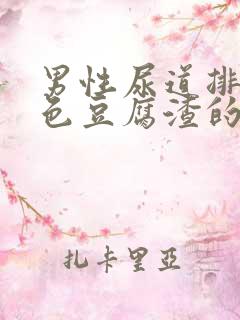 男性尿道排
色豆腐渣的
扎卡里亞